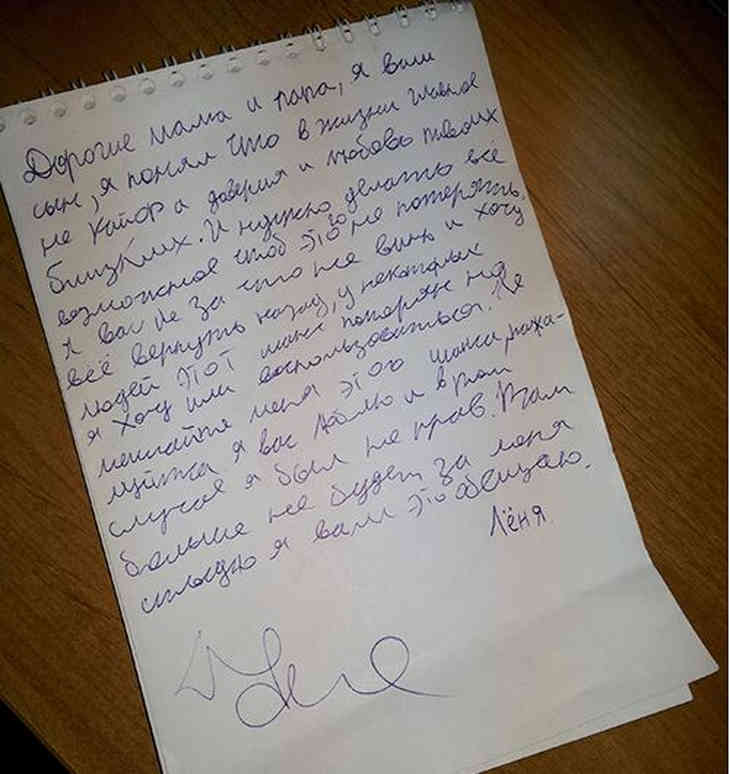 Дорогие мама и папа, я ваш
сын, я понял что в жизни главное
не кайф а доверия и любовь твоих
близких. И нужно делать всё
возможное чтоб это не потерять.
Я вас не за что не виню и хочу
всё вернуть назад, у некоторых
людей этот шанс потерян но
я хочу им воспользоваться. Не
лишайте меня этого шанса, пожа-
луйста я вас люблю и в том
случае я был не прав. Вам
больше не будет за меня
стыдно я вам это обещаю.
Лёня